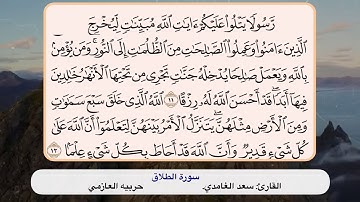 رَّسُولًا يَتْلُوا۟ عَلَيْكُمْ ءَايَٰتِ ٱللَّهِ مُبَيِّنَٰتٍ لِّيُخْرِجَ
ٱلَّذِينَ ءَامَنُوا۟ وَعَمِلُوا۟ ٱلصَّٰلِحَٰتِ مِنَ ٱلظُّلُمَٰتِ إِلَى ٱلنُّورِ ۚ وَمَن يُؤْمِنۢ
بِٱللَّهِ وَيَعْمَلْ صَٰلِحًا يُدْخِلْهُ جَنَّٰتٍ تَجْرِى مِن تَحْتِهَا ٱلْأَنْهَٰرُ خَٰلِدِينَ
فِيهَآ أَبَدًا ۖ قَدْ أَحْسَنَ ٱللَّهُ لَهُۥ رِزْقًا ١١ ٱللَّهُ ٱلَّذِى خَلَقَ سَبْعَ سَمَٰوَٰتٍ
وَمِنَ ٱلْأَرْضِ مِثْلَهُنَّ يَتَنَزَّلُ ٱلْأَمْرُ بَيْنَهُنَّ لِتَعْلَمُوٓا۟ أَنَّ ٱللَّهَ عَلَىٰ
كُلِّ شَىْءٍ قَدِيرٌ وَأَنَّ ٱللَّهَ قَدْ أَحَاطَ بِكُلِّ شَىْءٍ عِلْمًۢا ١٢
سورة الطلاق
القارئ: سعد الغامدي. حربيه العازمي